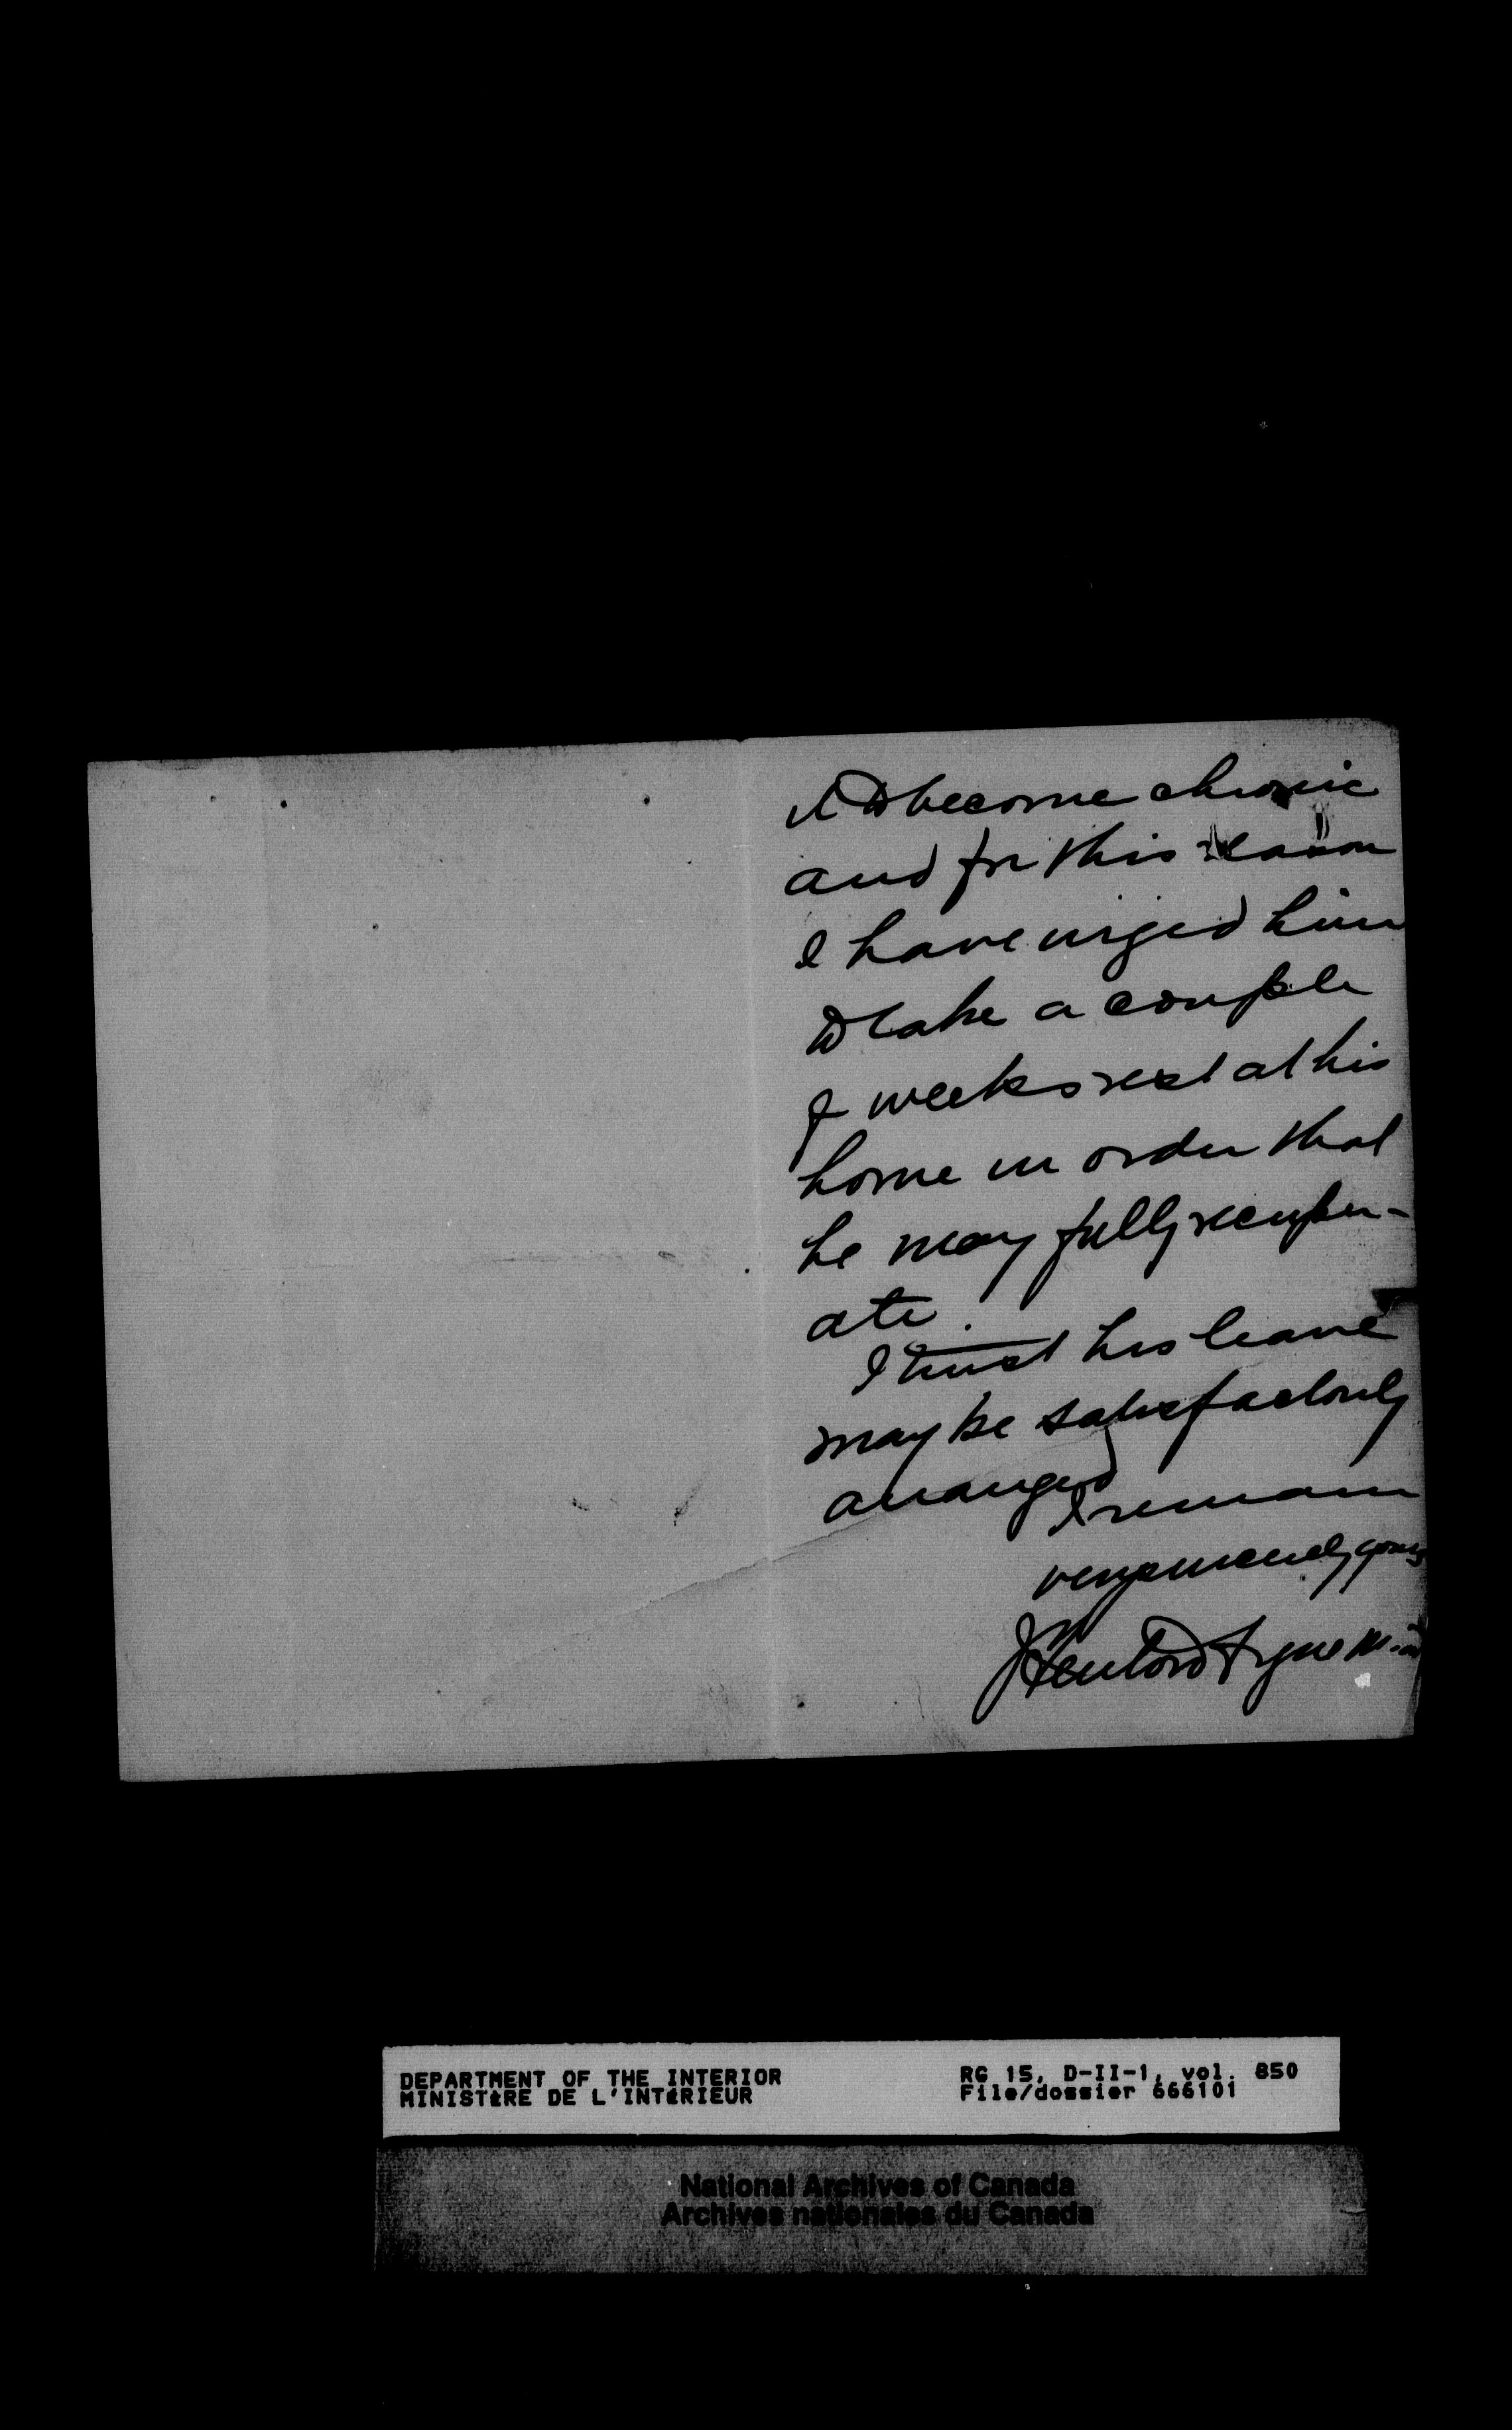 it to become chronic
and for this reason
I have urged him
to take a couple
of weeks rest at his
home in order that
he may fully recuper-
ate.
I trust his leave
may be satisfactorily
arranged
I remain
very sincerely yours
M.D.
DEPARTMENT OF THE INTERIOR
MINISTÈRE DE L'INTÉRIEUR
RG 15, D-II-1, vol. 850
File/dossier 666101
National Archives of Canada
Archives nationales du Canada